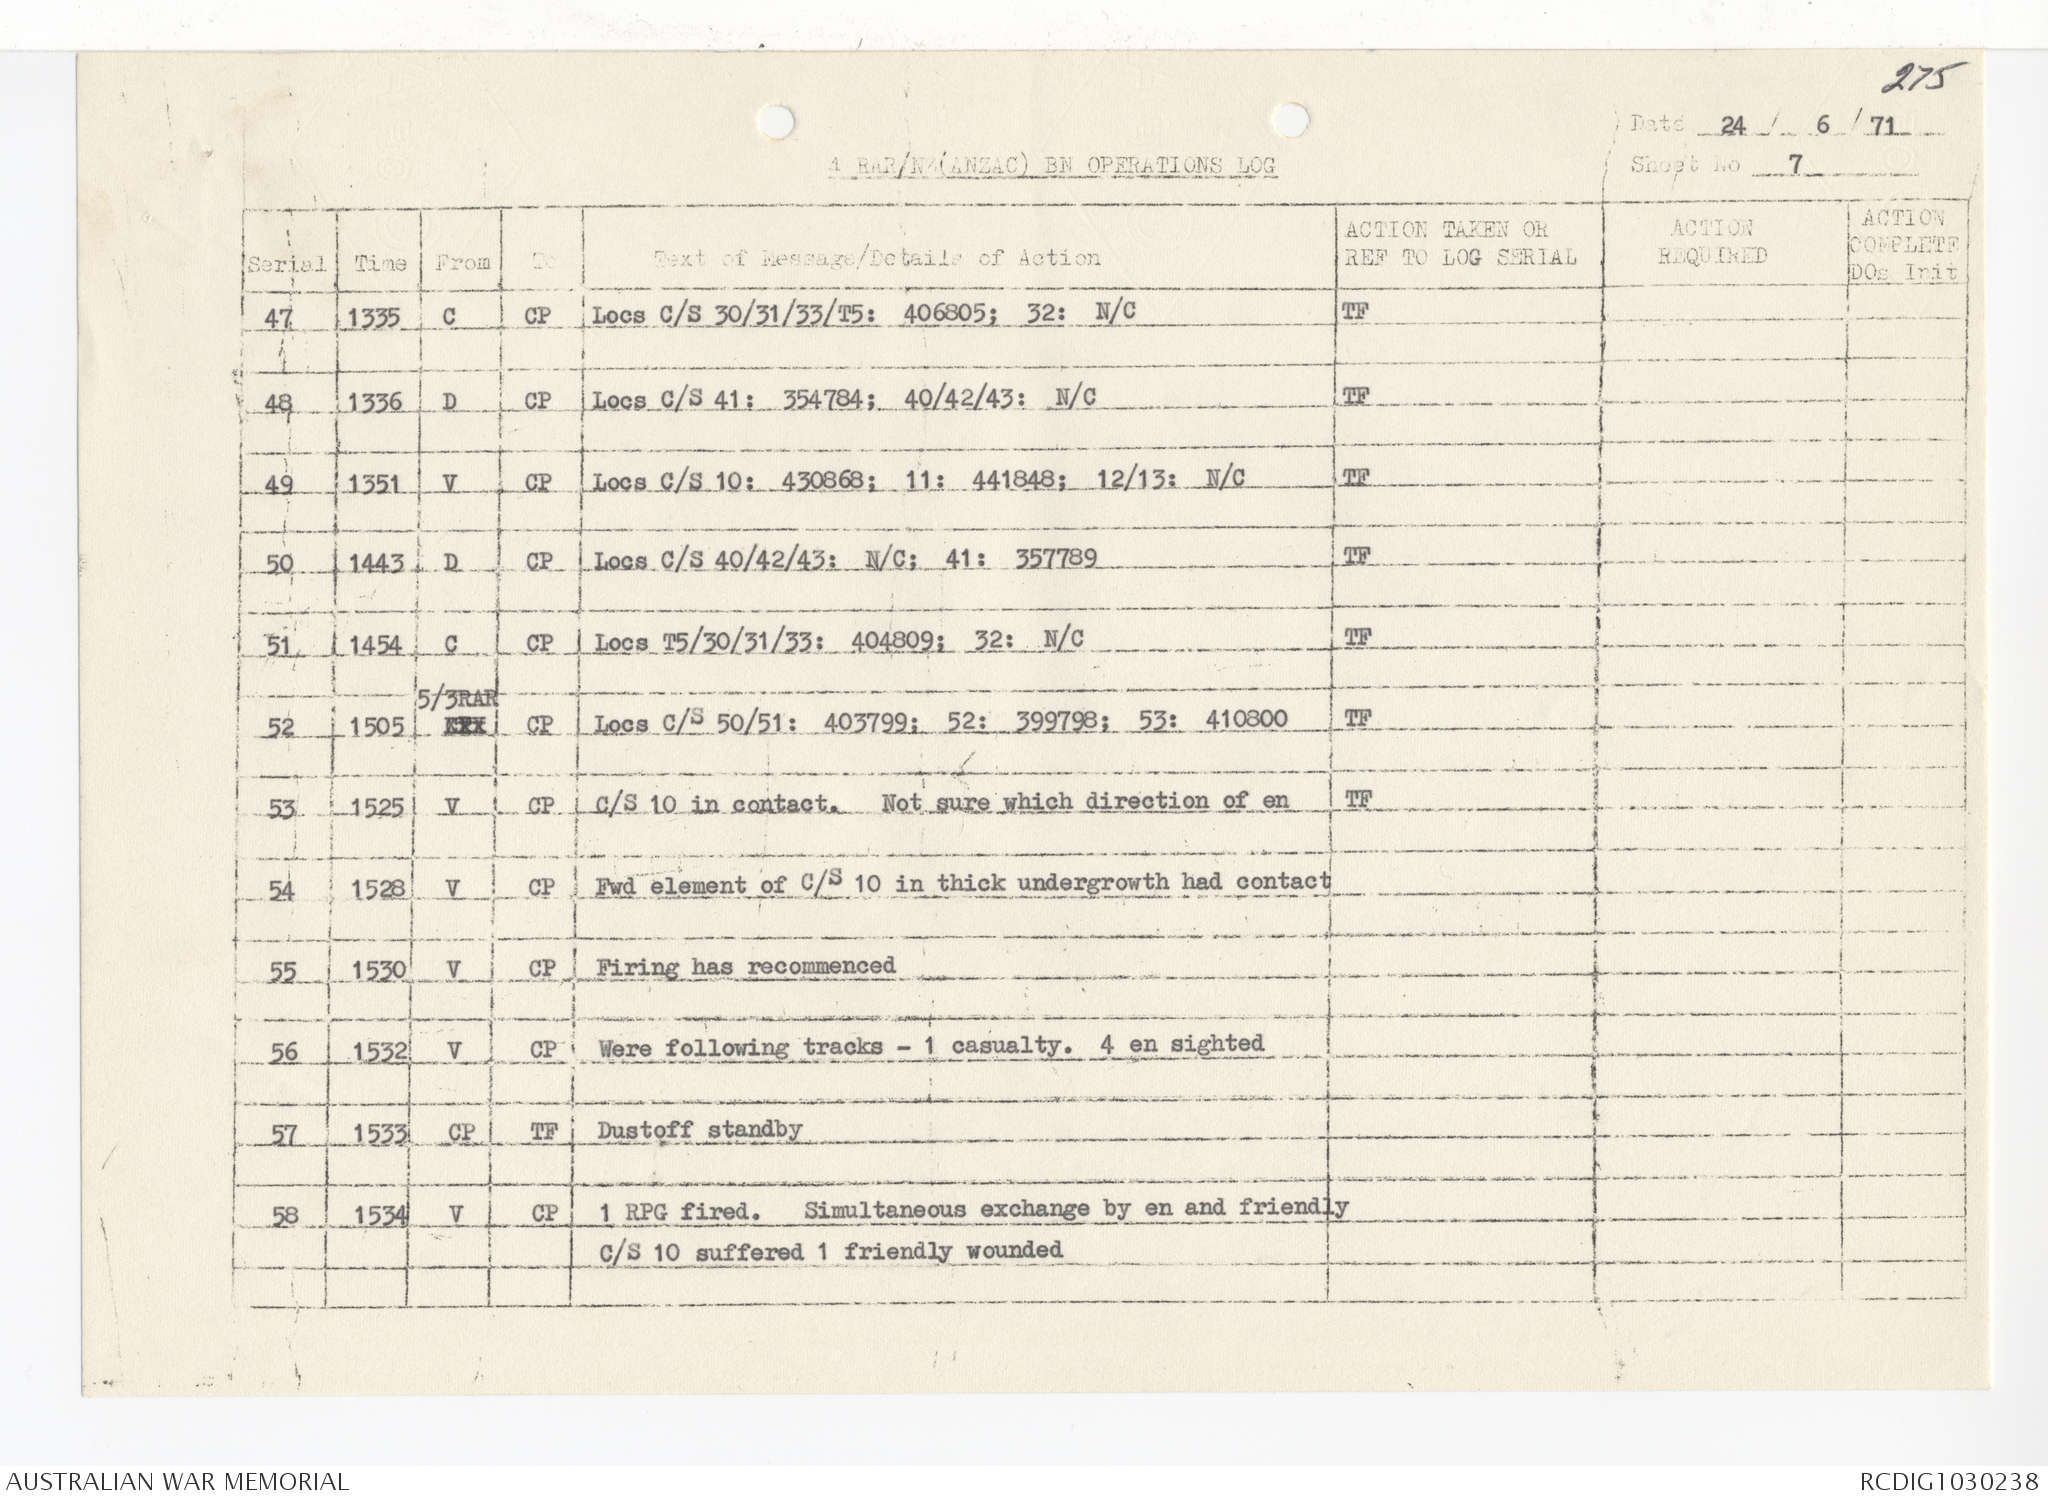 275
Date 24 / 6 / 71
4 RAR/NZ(ANZAC) BN OPERATIONS LOG
Sheet No 7
Serial Time From To Text of Message/Details of Action ACTION TAKEN OR REF TO LOG SERIAL ACTION REQUIRED ACTION COMPLETE DOs Init
47 1335 C CP Locs C/S 30/31/33/T5: 406805; 32: N/C TF
48 1336 D CP Locs C/S 41: 354784; 40/42/43: N/C TF
49 1351 V CP Locs C/S 10: 430868; 11: 441848; 12/13: N/C TF
50 1443 D CP Locs C/S 40/42/43: N/C; 41: 357789 TF
51 1454 C CP Locs T5/30/31/33: 404809; 32: N/C TF
5/3RAR
52 1505 CP Locs C/S 50/51: 403799; 52: 399798; 53: 410800 TF
53 1525 V CP C/S 10 in contact. Not sure which direction of en TF
54 1528 V CP Fwd element of C/S 10 in thick undergrowth had contact
55 1530 V CP Firing has recommenced
56 1532 V CP Were following tracks - 1 casualty. 4 en sighted
57 1533 CP TF Dustoff standby
58 1534 V CP 1 RPG fired. Simultaneous exchange by en and friendly
C/S 10 suffered 1 friendly wounded
AUSTRALIAN WAR MEMORIAL RCDIG1030238